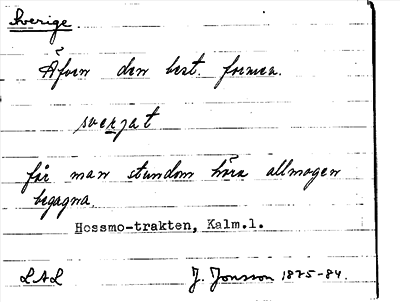 Sverige.
Äfven den best. formen
sverjat
får man stundom höra allmogen
begagna.
Hossmo-trakten, Kalm.l.
LAL J. Jonsson 1875-84.